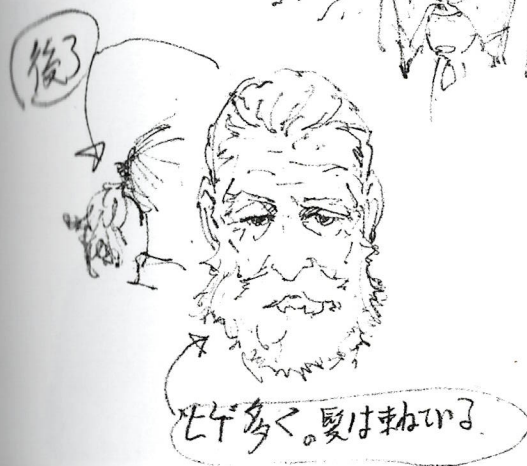 後ろ
ヒゲ多く。髪は束ねている